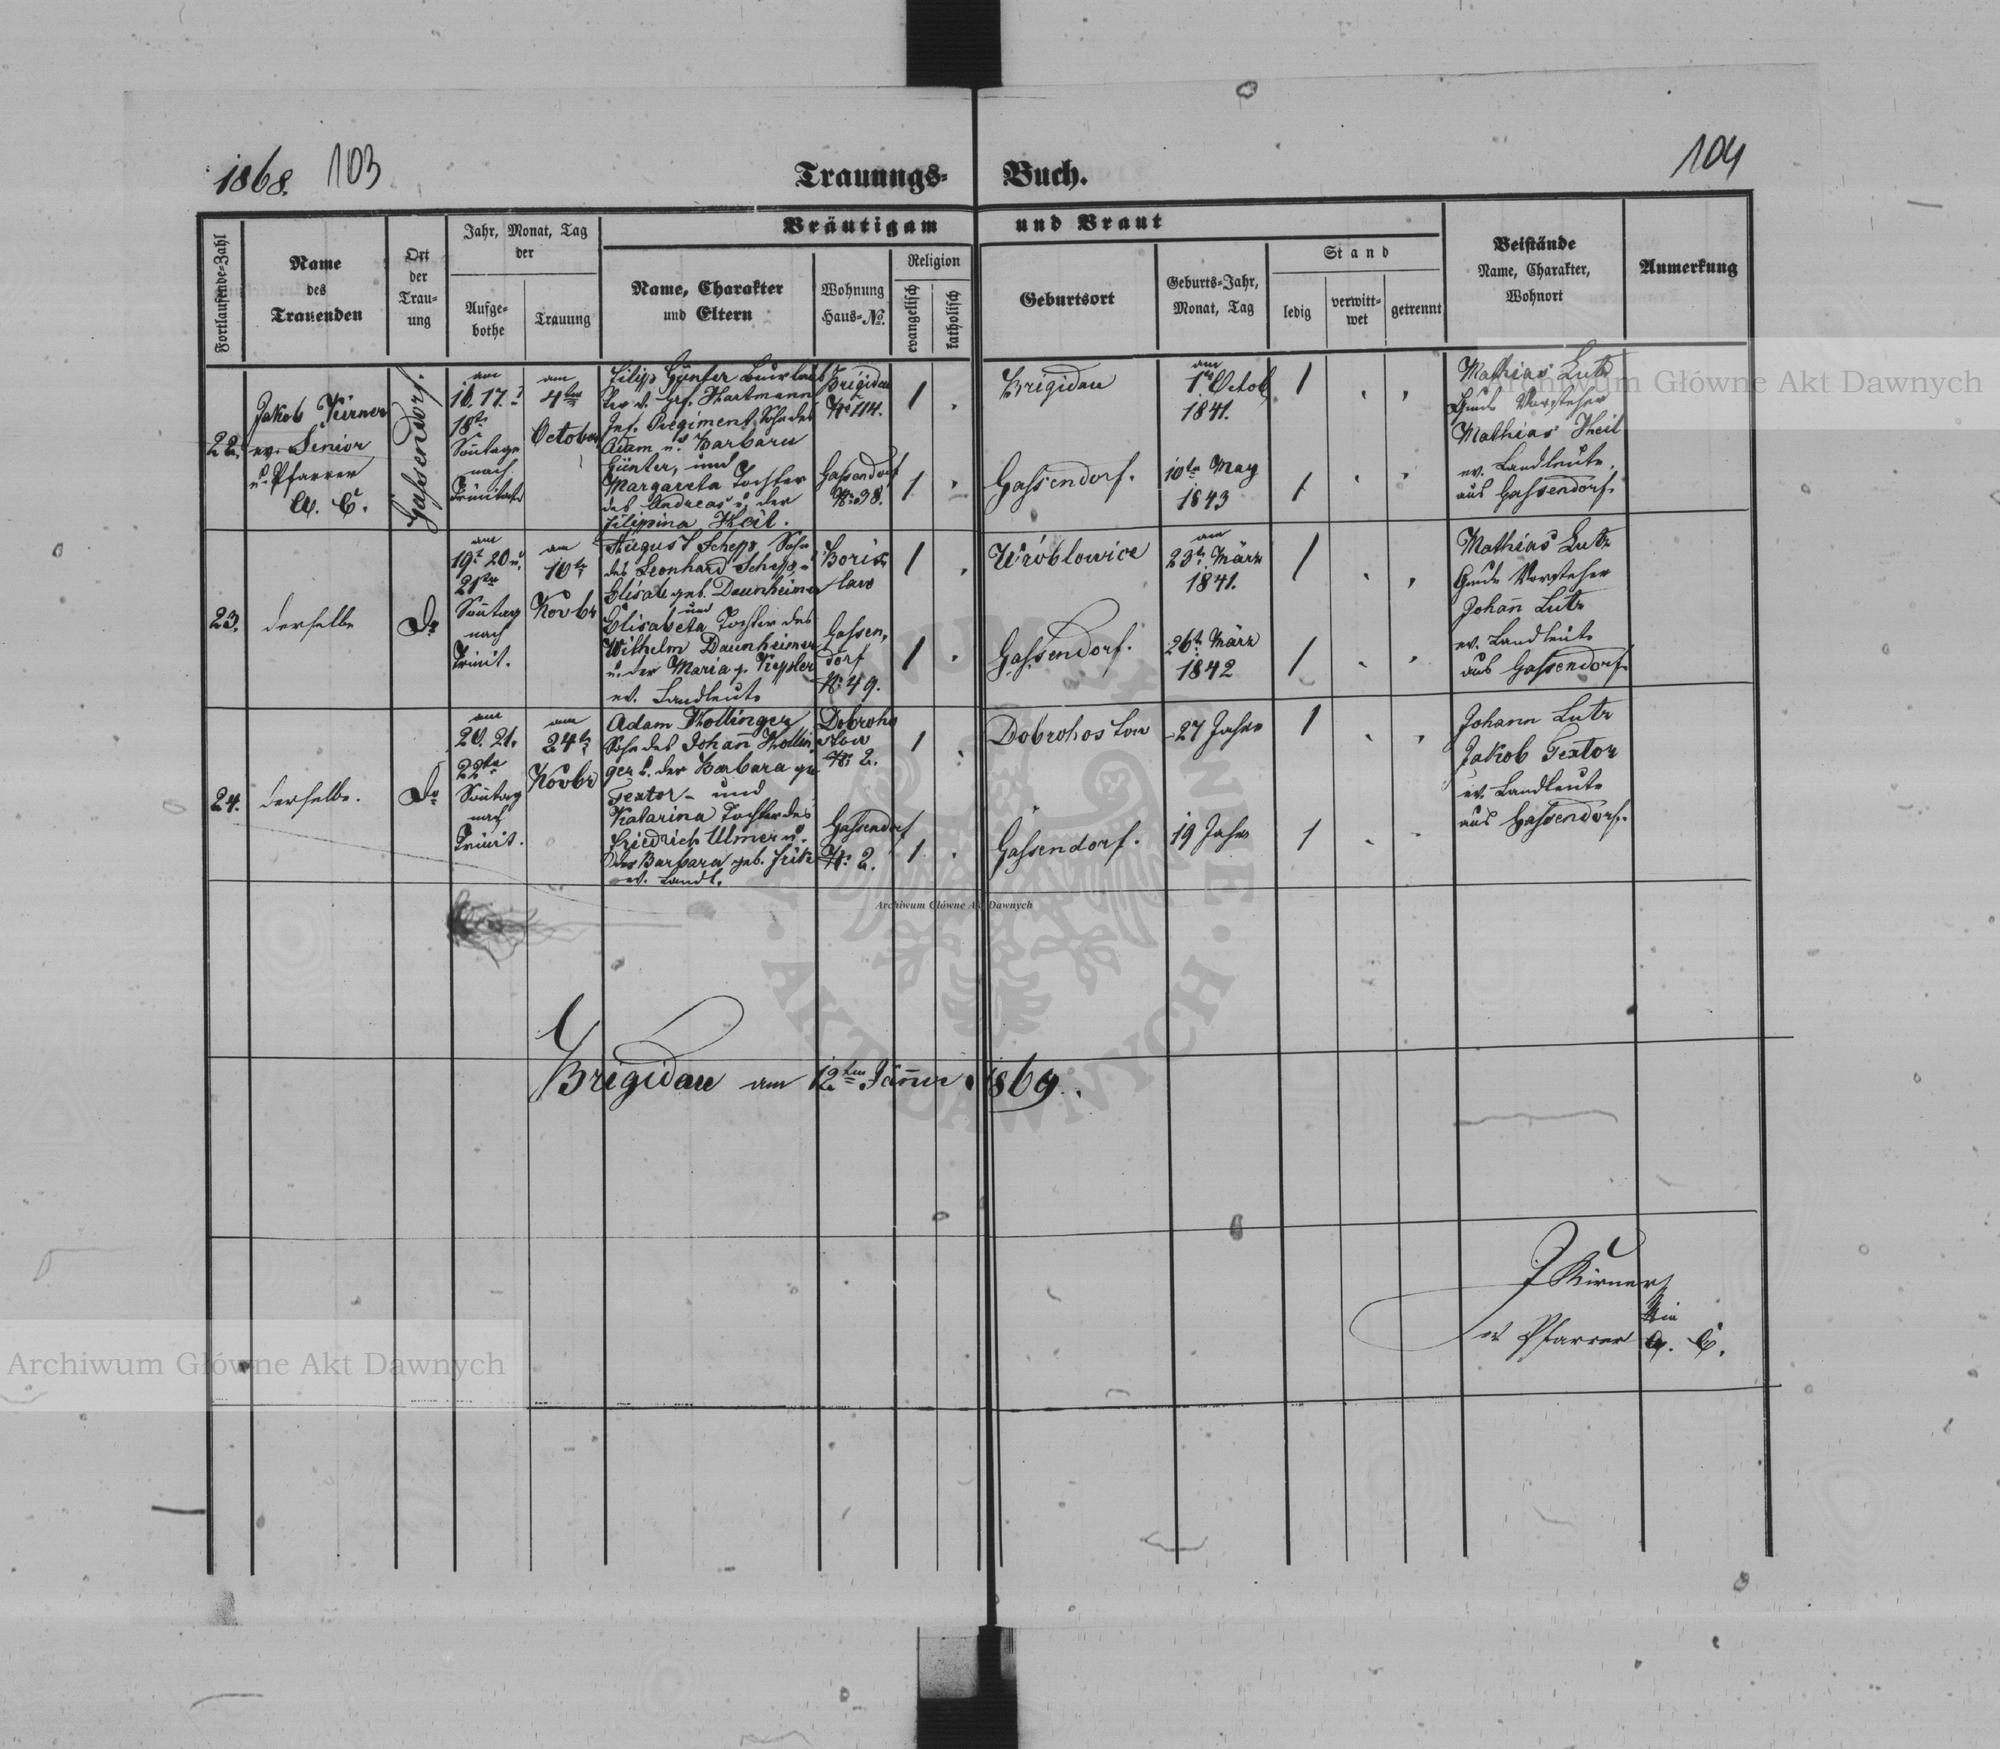 1868. 103
104
Trauungs-Buch.
Fortlaufende-Zahl
Name
des
Trauenden
Ort
der
Trau-
ung
Jahr, Monat, Tag
der
Aufge-
bothe
Trauung
Bräutigam und Braut
Name, Charakter
und Eltern
Wohnung
Haus-No.
Religion
evangelisch
katholisch
Geburtsort
Geburts-Jahr,
Monat, Tag
Stand
ledig
verwitt-
wet
getrennt
Beistände
Name, Charakter,
Wohnort
Anmerkung
22.
Jakob Kirner
ev. Senior
u. Pfarrer
A. C.
Gassendorf.
am
16. 17. u
18ten
Sonntage
nach
Trinitatis
am
4ten
October
Filipp Günter Beurlaub
Inf. Regiment, Sohn des
Adam u. Barbara
Günter, und
Margareta Tochter
des Andreas u. der
Filippina Theil.
Brigidau
No 114.
1 .
Gassendorf
No 98.
1 .
Brigidau
am
1ten Octob
1841.
1 . .
Gassendorf.
10ten May
1843
1 . .
Mathias Lutz
Gmde Vorsteher
Mathias Theil
ev. Landleute
aus Gassendorf.
23.
derselbe
Do
am
19t 20 u.
21ten
Sontag
nach
Trinit.
am
10te
Novbr
August Schepp Sohn
des Leonhard Schepp u
Elisab. geb. Daunheimer
und
Elisabeta Tochter des
Wilhelm Daunheimer
u. der Maria g. Keppler
ev. Landleute
Boris
law
1 .
Gassen,
dorf
No 49.
1 .
Wróblowice
am
23te März
1841.
1 . .
Gassendorf.
26te März
1842
1 . .
Mathias Lutz
Gmde Vorsteher
Johan̄ Lutz
ev. Landleute
aus Gassendorf.
24.
derselbe.
Do
am
20. 21.
22ten
Sontag
nach
Trinit.
am
24te
Novbr
Adam Kollinger
Sohn des Johan̄ Kollin
ger u. der Barbara ge
Textor - und
Katarina Tochter des
Friedrich Ulmer u.
der Barbara geb. Fritz
ev. Landl.
Dobroho
stow
No 2.
1 .
Gassendorf
No 2.
1 .
Dobrohostow
27 Jahre
1 . .
Gassendorf.
19 Jahre
1 . .
Johann Lutz
Jakob Textor
ev. Landleute
aus Gassendorf.
Brigidau am 12ten Jän̄er 1869.
J Kirner
ev Pfarrer A. C.
Archiwum Główne Akt Dawnych
Archiwum Główne Akt Dawnych
Archiwum Główne Akt Dawnych